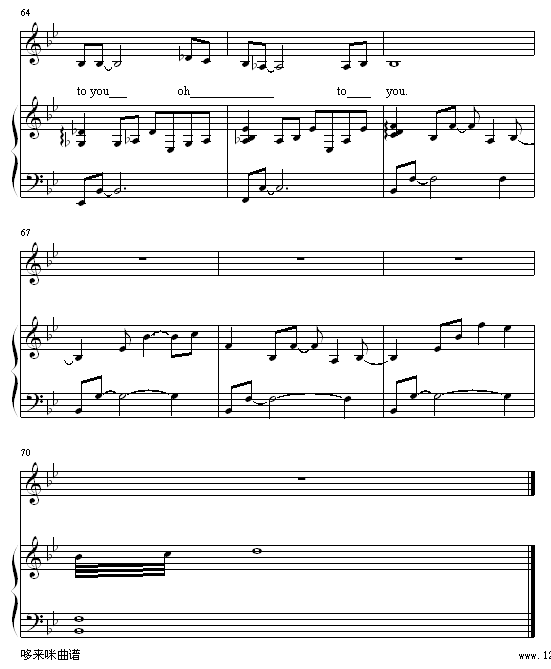 64
to you___ oh____________ to____ you.
67
70
哆来咪曲谱
www.12